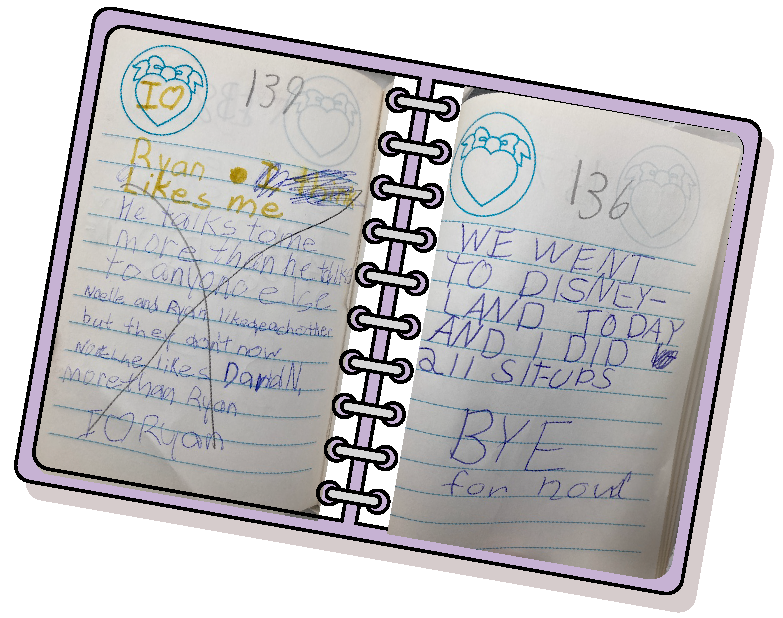 I♡
139
Ryan
Likes me
He talks to me
more than he talks
to anyone else
Noelle and Ryan likeqeachother
but they don't now
Noelle likes Daniel N,
more than Ryan
I ♡ Ryan
136
WE WENT
TO DISNEY-
LAND TODAY
AND I DID
211 SIT-UPS
BYE
for now